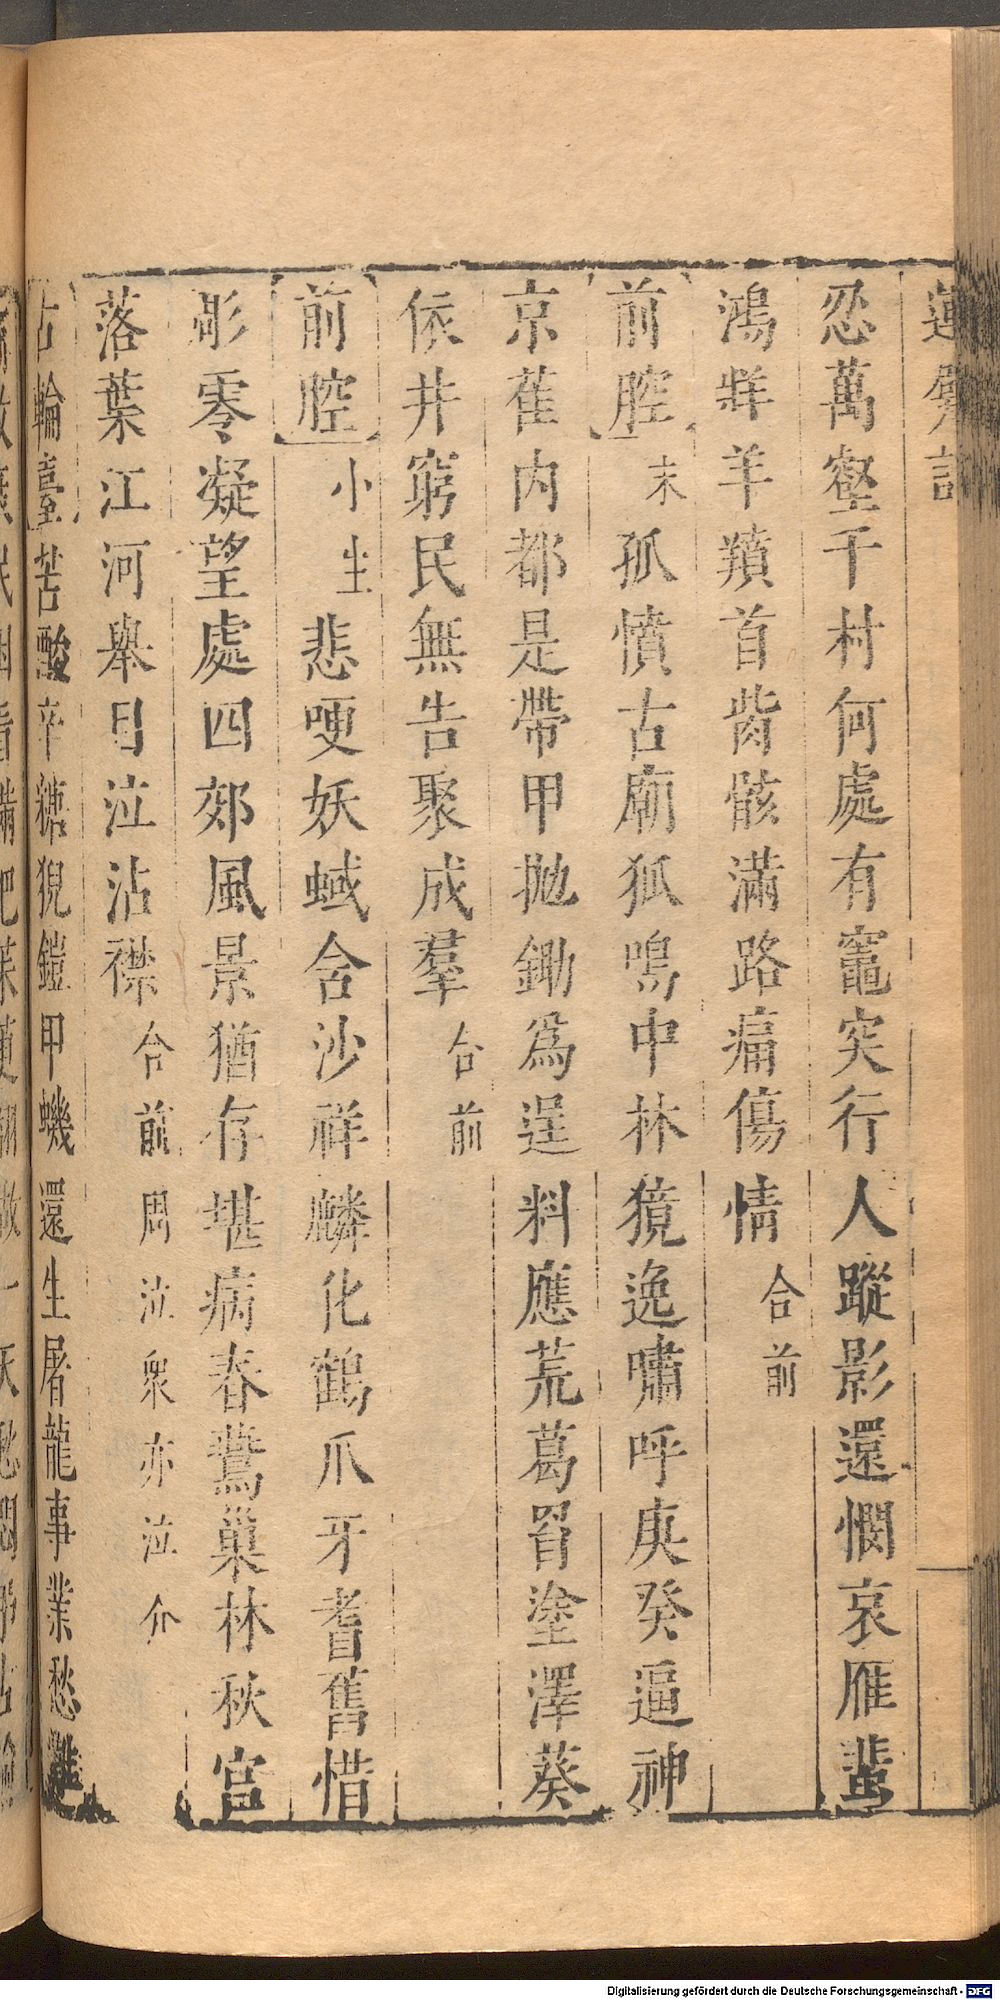 忍萬壑千村何處有竈突行人蹤影還憫哀雁蜚
鴻牂羊羵首胔骸滿路痛傷情合前
前腔末孤憤古廟狐鳴中林獍逸嘯呼庚癸逼神
京萑内都是帶甲拋鋤爲逞料應荒葛罥塗澤葵
依井窮民無告聚成羣合前
前腔小生悲哽妖蜮含沙祥麟化鶴爪牙耆舊惜
彫零凝望處四郊風景猶存堪病春鶯巢林秋宫
落葉江河舉目泣沾襟合前周泣衆亦泣介
古輪臺苦酸辛穂猊鎧甲蟣還生屠龍事業愁難
Digitalisierung gefördert durch die Deutsche Forschungsgemeinschaft - DFG